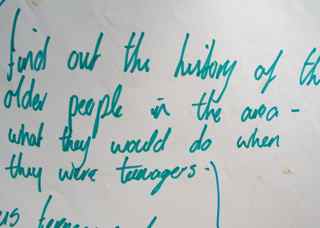 find out the history of th
older people in the area -
what they would do when
they were teenagers.
us